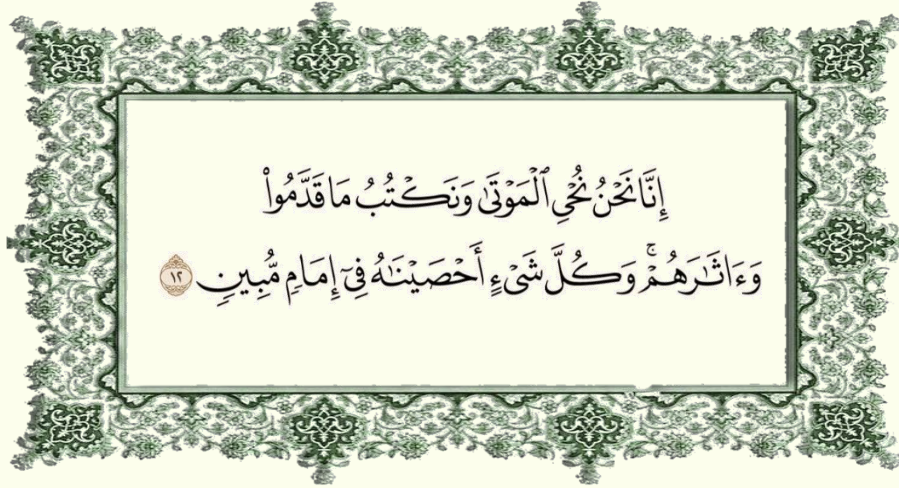 إِنَّا نَحْنُ نُحْىِ ٱلْمَوْتَىٰ وَنَكْتُبُ مَا قَدَّمُوا۟
وَءَاثَـٰرَهُمْ ۚ وَكُلَّ شَىْءٍ أَحْصَيْنَـٰهُ فِىٓ إِمَامٍ مُّبِينٍ ١٢